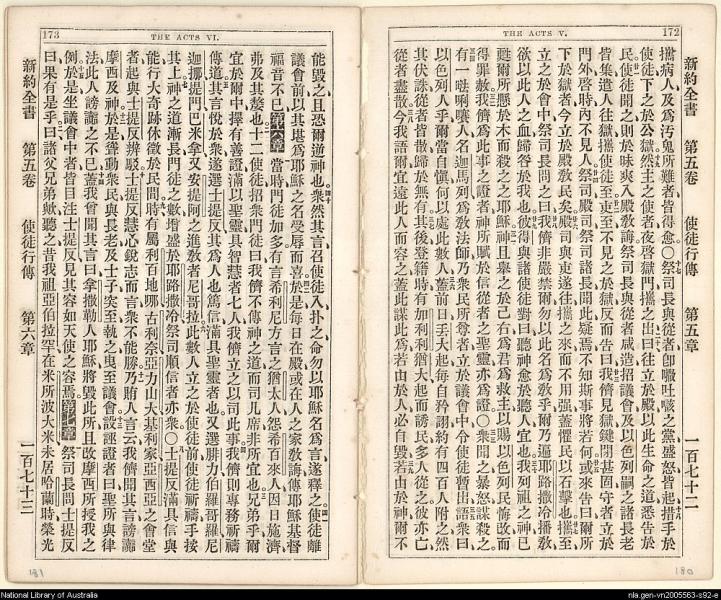 172
THE ACTS V.
新約全書 第五卷 使徒行傳 第五章 一百七十二
攜病人及爲汚鬼所難者皆得愈○祭司長與從者卽吐之黨盛怒皆起措手於
使徒下之於公獄然主之使者夜啓獄門攜之出曰往立於殿以此生命之道悉告於
民使徒聞之於昧爽入殿敎誨祭司長與從者咸造招議會及以色列嗣之諸長老
皆集遣人往獄攜使徒至吏至不見之於獄反而告曰我儕見獄鍵閉甚固守者立於
門外啓時內不見人祭司殿司祭司諸長聞此疑焉不知斯事將若何或來告曰爾所
下於獄者今立於殿敎民矣殿司與吏遂往攜之來而不用强蓋懼民以石擊也攜至
立之於會中祭司長問之曰我儕非嚴禁爾勿以此名爲敎乎爾乃遍耶路撒冷播敎
欲以此人之血歸咎於我也彼得與諸使徒對曰聽神愈於聽人宜也我列祖之神已
甦爾所懸於木而殺之之耶穌神且舉之於己右爲君爲救主以賜以色列民悔改而
得罪赦我儕爲此事之證者神所賦於信從者之聖靈亦爲證○衆聞之暴怒謀殺之
有一唎人名迦馬列爲敎法師乃衆民所尊者立於議會中令使徒暫出語衆曰
以色列人乎爾當自愼何以處此數人蓋前日丟大起每自矜詡約有四百人附之然
其伏誅從者皆散歸於無有其後登籍時有加利利猶大起而誘民多人從之彼亦亡
從者盡散今我語爾宜遠此人而容之蓋此謀此爲若由於人必自毀若由於神爾不
180
173
THE ACTS VI.
能毀之且恐爾逆神也衆然其言召使徒入扑之命勿以耶穌名爲言遂釋之使徒離
議會前以其堪爲耶穌之名受辱而喜於是每日在殿或在人之家敎誨傳耶穌基督
福音不已第六章當時門徒加多有言希利尼方言之猶太人怨希百來人因日施濟
弗及其嫠也十二使徒招衆門徒曰我儕不傳神之道而司几席非所宜也兄弟乎爾
宜於爾中擇有善證滿以聖靈具智慧者七人我儕立之以司此事我儕則專務祈禱
傳道其言悅於衆遂選士提反其爲人也篤信滿具聖靈者也又選腓力伯羅哥羅尼
迦挪提門巴米拿又安提阿之進敎者尼哥拉此數人立之於使徒前使徒祈禱手按
其上神之道漸長門徒之數增盛於耶路撒冷祭司順信者亦衆○士提反滿具信與
能行大奇跡休徵於民間時有屬利百地哪古利奈亞力山大基利家亞西亞之會堂
者起與士提反辨駁士提反慧心銳志而言衆不能勝乃賄人言云我儕聞其言謗讟
摩西及神於是聳動衆民與長老及士子突至執之曳至議會設誣證者曰聖所與律
法此人謗讟之不已蓋我曾聞其言曰拿撒勒人耶穌將毀此所且改摩西所授我之
例於是坐議會中者皆目注士提反見其容如天使之容焉第七章祭司長問士提反
曰果有是乎曰諸父兄弟歟聽之昔我祖亞伯拉罕在米所波大米未居哈蘭時榮光
新約全書 第五卷 使徒行傳 第六章 一百七十三
181
National Library of Australia
nla.gen-vn2005563-s92-e